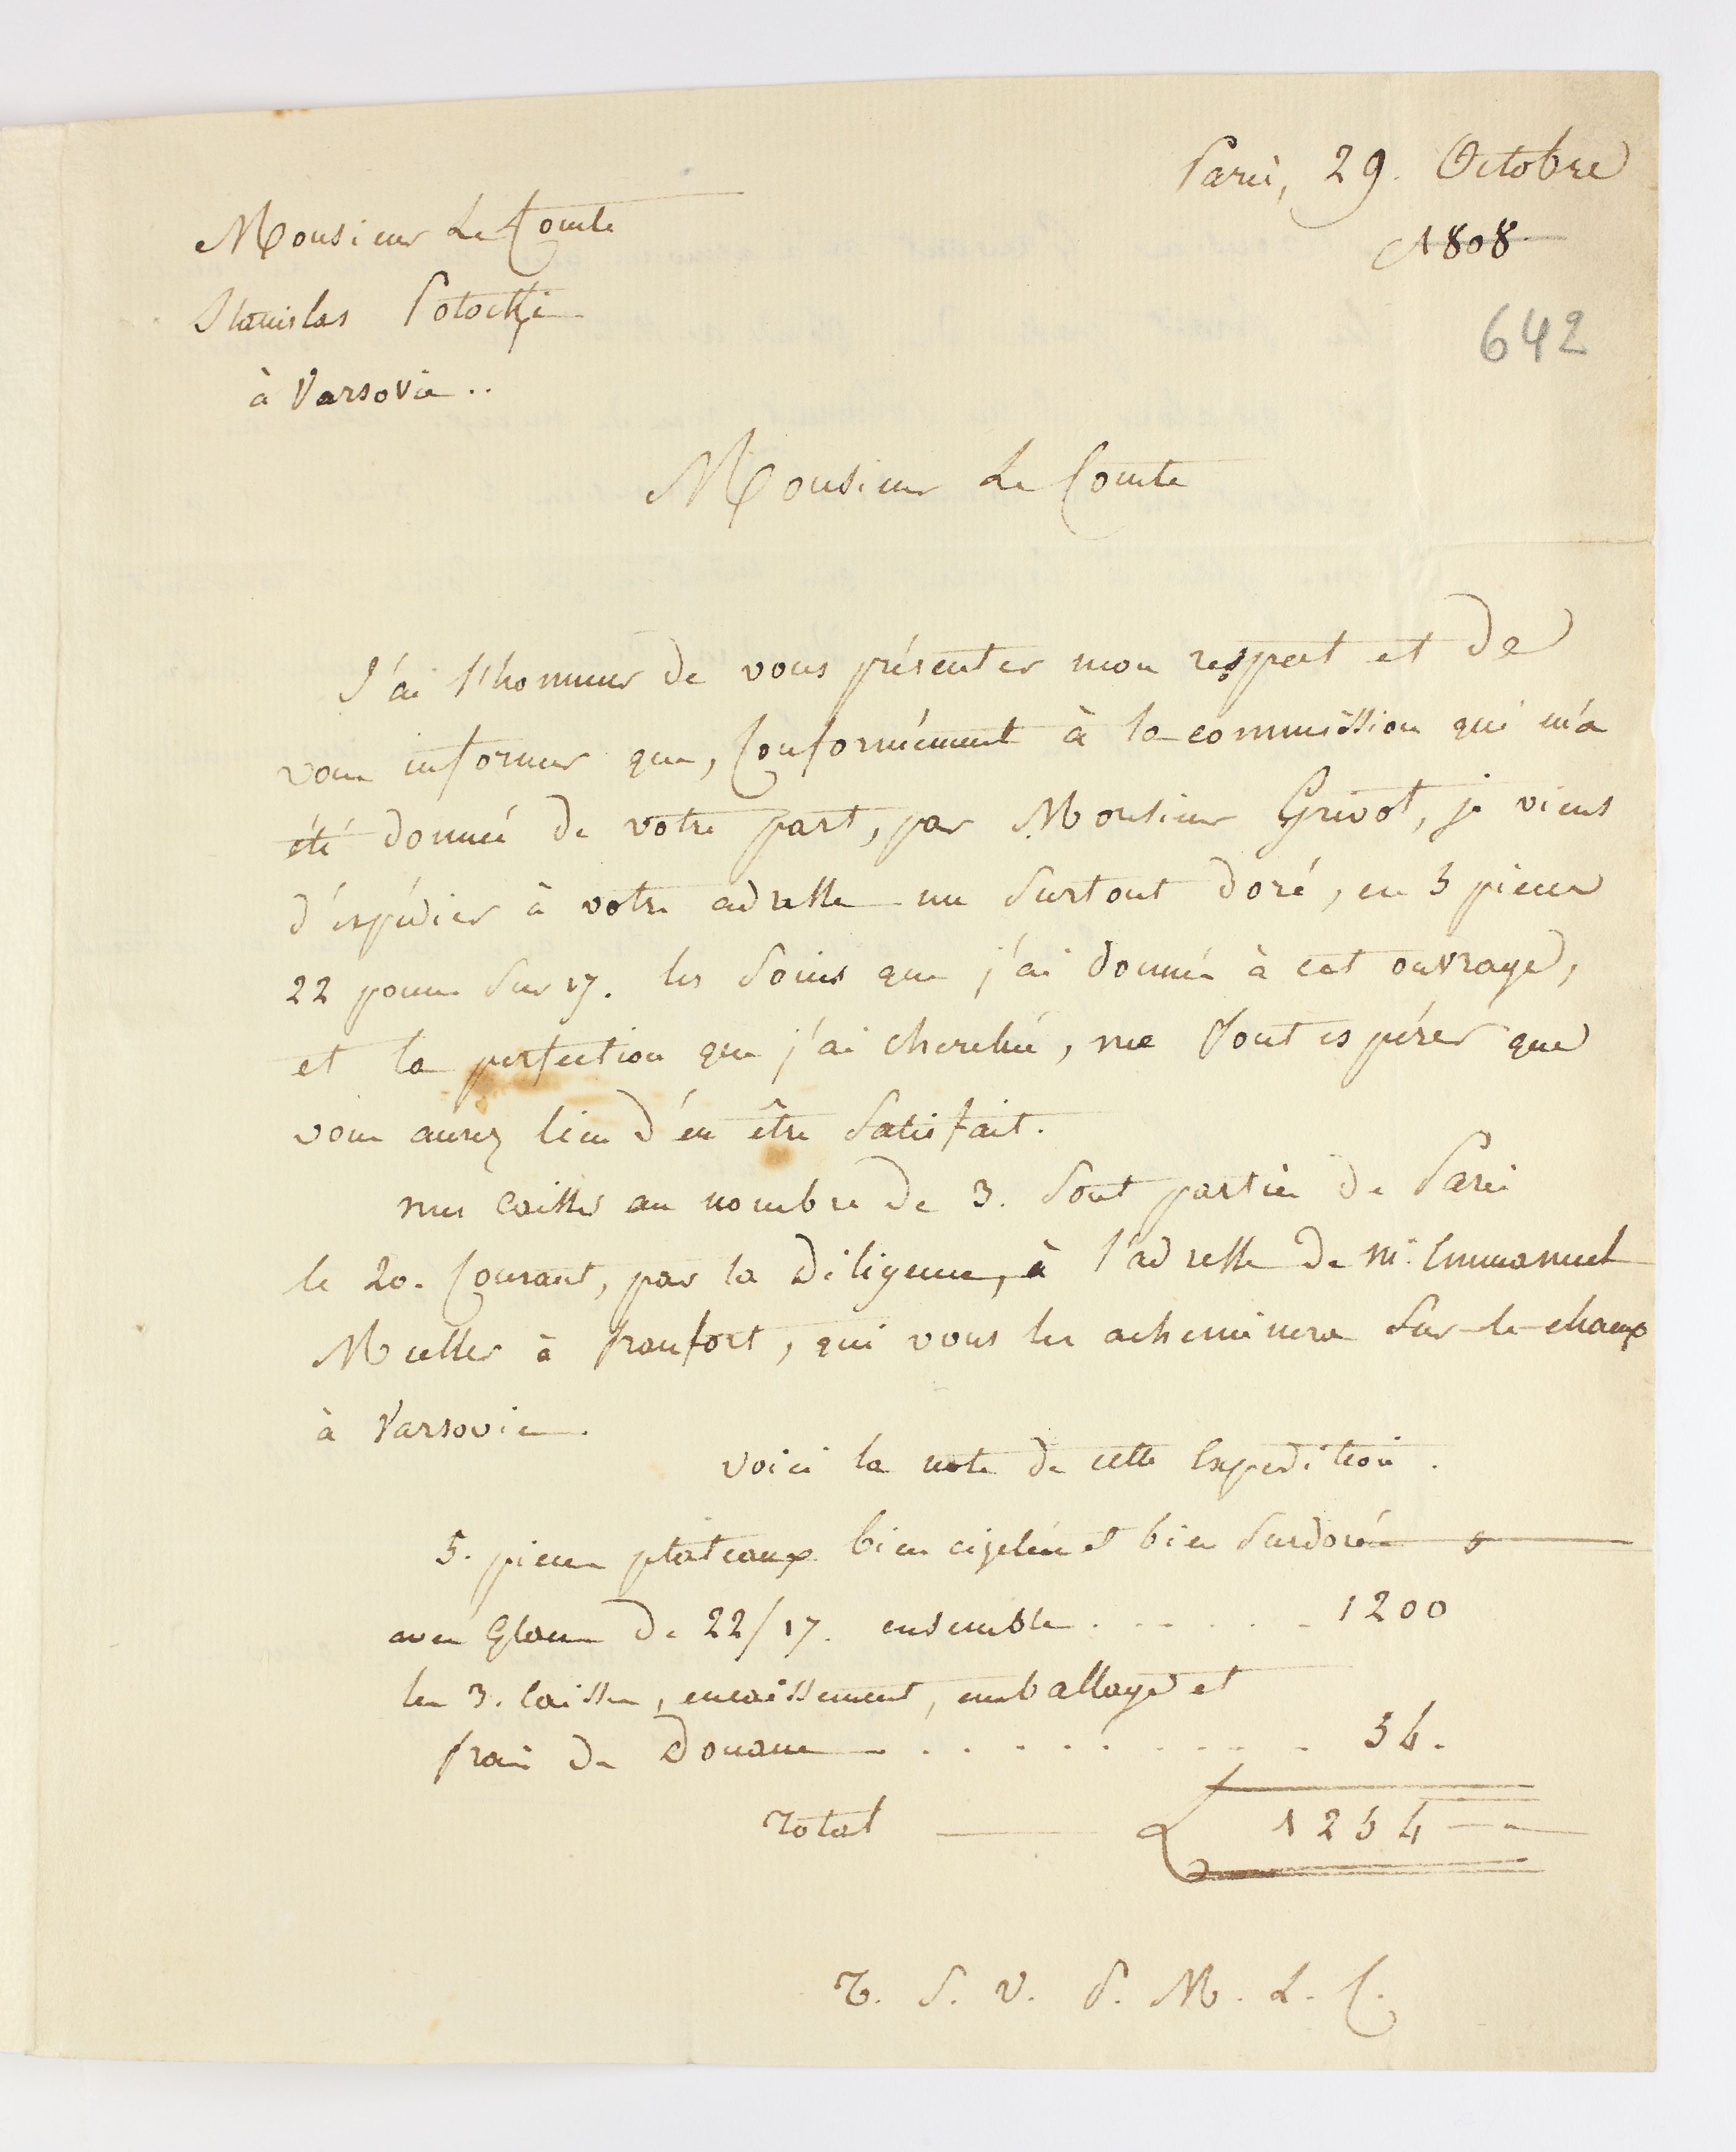 Paris, 29. Octobre
1808
Monsieur Le Comte
Stanislas Potocki
à Varsovie..
642
Monsieur Le Comte
J'ai l'honneur de vous présenter mon respect et de
vous informer que, Conformément à la commission qui m'a
été donnée de votre part, par Monsieur Grivot, je viens
d'éxpédier à votre adresse un Surtout doré, en 5 pieces
22 pouces Sur 17. les Soins que j'ai donnés à cet ouvrage,
et la perfection que j'ai cherché, me font espérer que
vous aurez lieu d'en être Satisfait.
mes Caisses au nombre de 3. Sont parties de Paris
le 20. Courant, par la Diligence, à l'adresse de Mr. Emmanuel
Muller à francfort, qui vous les acheminera Sur-le-champ
à Varsovie.
Voici la note de cette Expedition.
5. pieces plateaux bien ciselés et bien Surdorés
avec Glaces de 22/17. ensemble . . . . . . 1200
les 3. Caisses, encaissement, emballage et
frais de Douane . . . . . . . . . 54.
Total 1254
T. S. V. P. M. L. C.